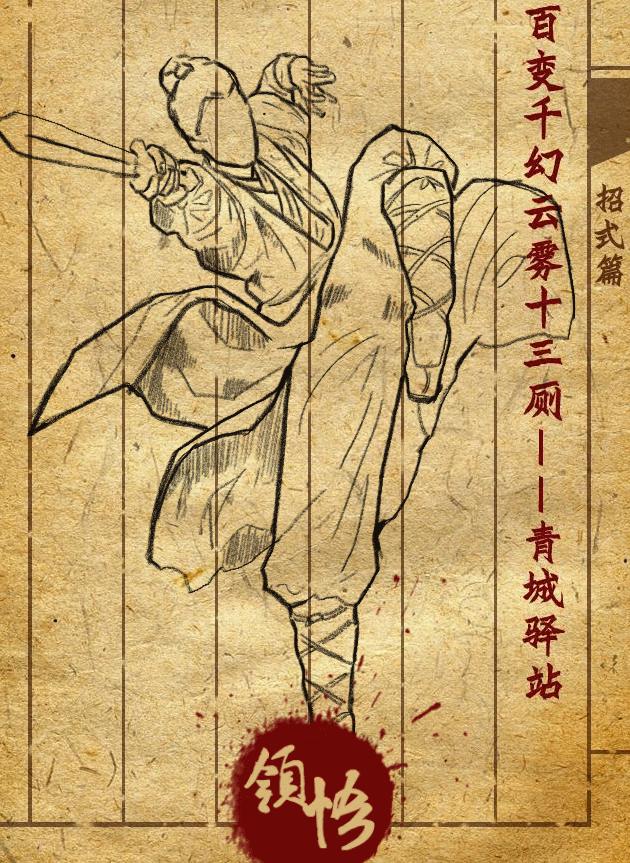 招式篇
百变千幻云雾十三厕——青城驿站
領悟